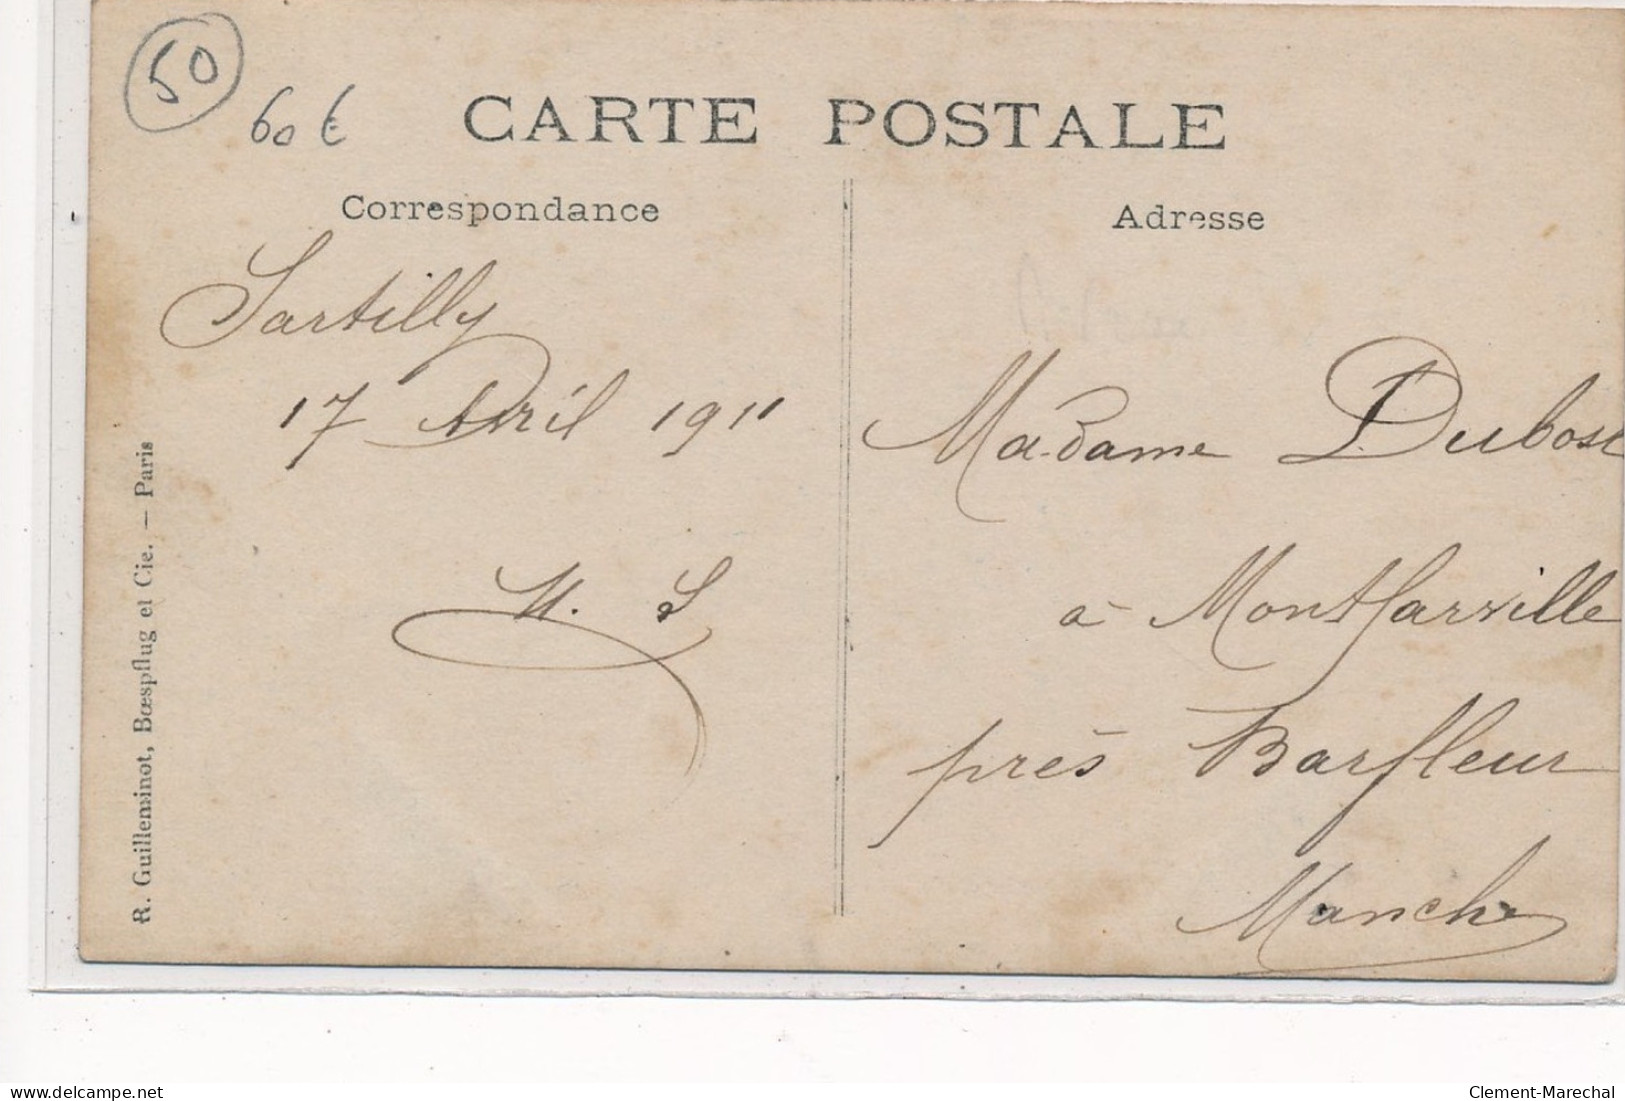 50
60 €
CARTE POSTALE
Correspondance
Adresse
Sartilly
17 Avril 1911
M. S
Madame Dubost
à Montfarville
près Barfleur
Manche
R. Guilleminot, Bœspflug et Cie. — Paris
www.delcampe.net
Clement-Marechal